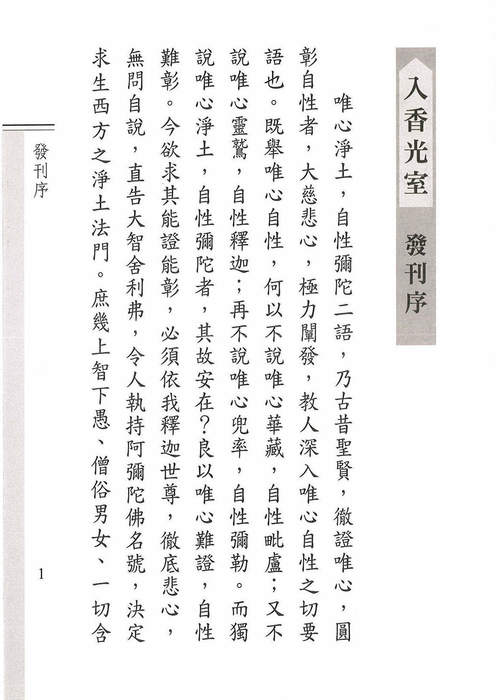 入香光室 發刊序
唯心淨土，自性彌陀二語，乃古昔聖賢，徹證唯心，圓
彰自性者，大慈悲心，極力闡發，教人深入唯心自性之切要
語也。既舉唯心自性，何以不說唯心華藏，自性毗盧；又不
說唯心靈鷲，自性釋迦；再不說唯心兜率，自性彌勒。而獨
說唯心淨土，自性彌陀者，其故安在？良以唯心難證，自性
難彰。今欲求其能證能彰，必須依我釋迦世尊，徹底悲心，
無問自說，直告大智舍利弗，令人執持阿彌陀佛名號，決定
求生西方之淨土法門。庶幾上智下愚、僧俗男女、一切含
發刊序
1